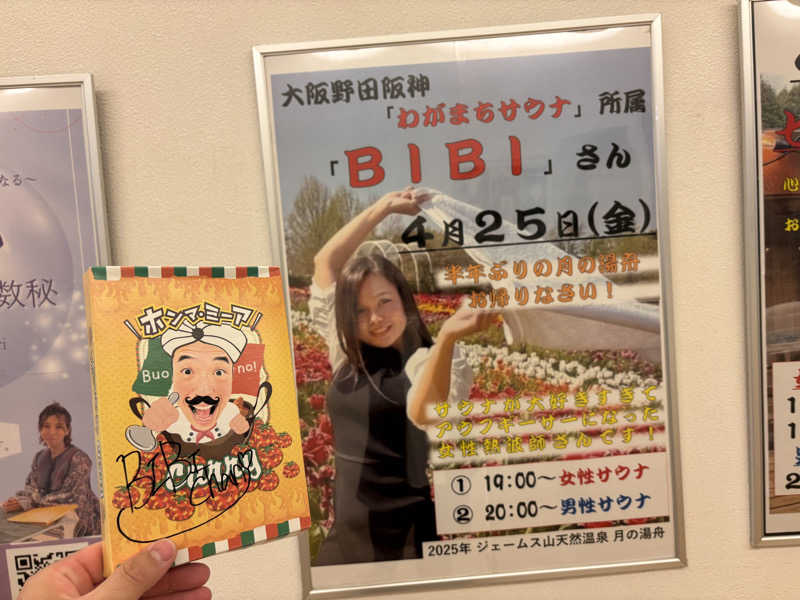 大阪野田阪神
「わがまちサウナ」所属
「BIBI」さん
4月25日(金)
半年ぶりの月の湯舟
お帰りなさい!
サウナが大好きすぎて
アウフギーサーになった
女性熱波師さんです!
① 19:00〜女性サウナ
② 20:00〜男性サウナ
2025年 ジェームス山天然温泉 月の湯舟
ホンマ・ミーア
Buo no!
BIBI
なる〜
数秘
ri
心
お